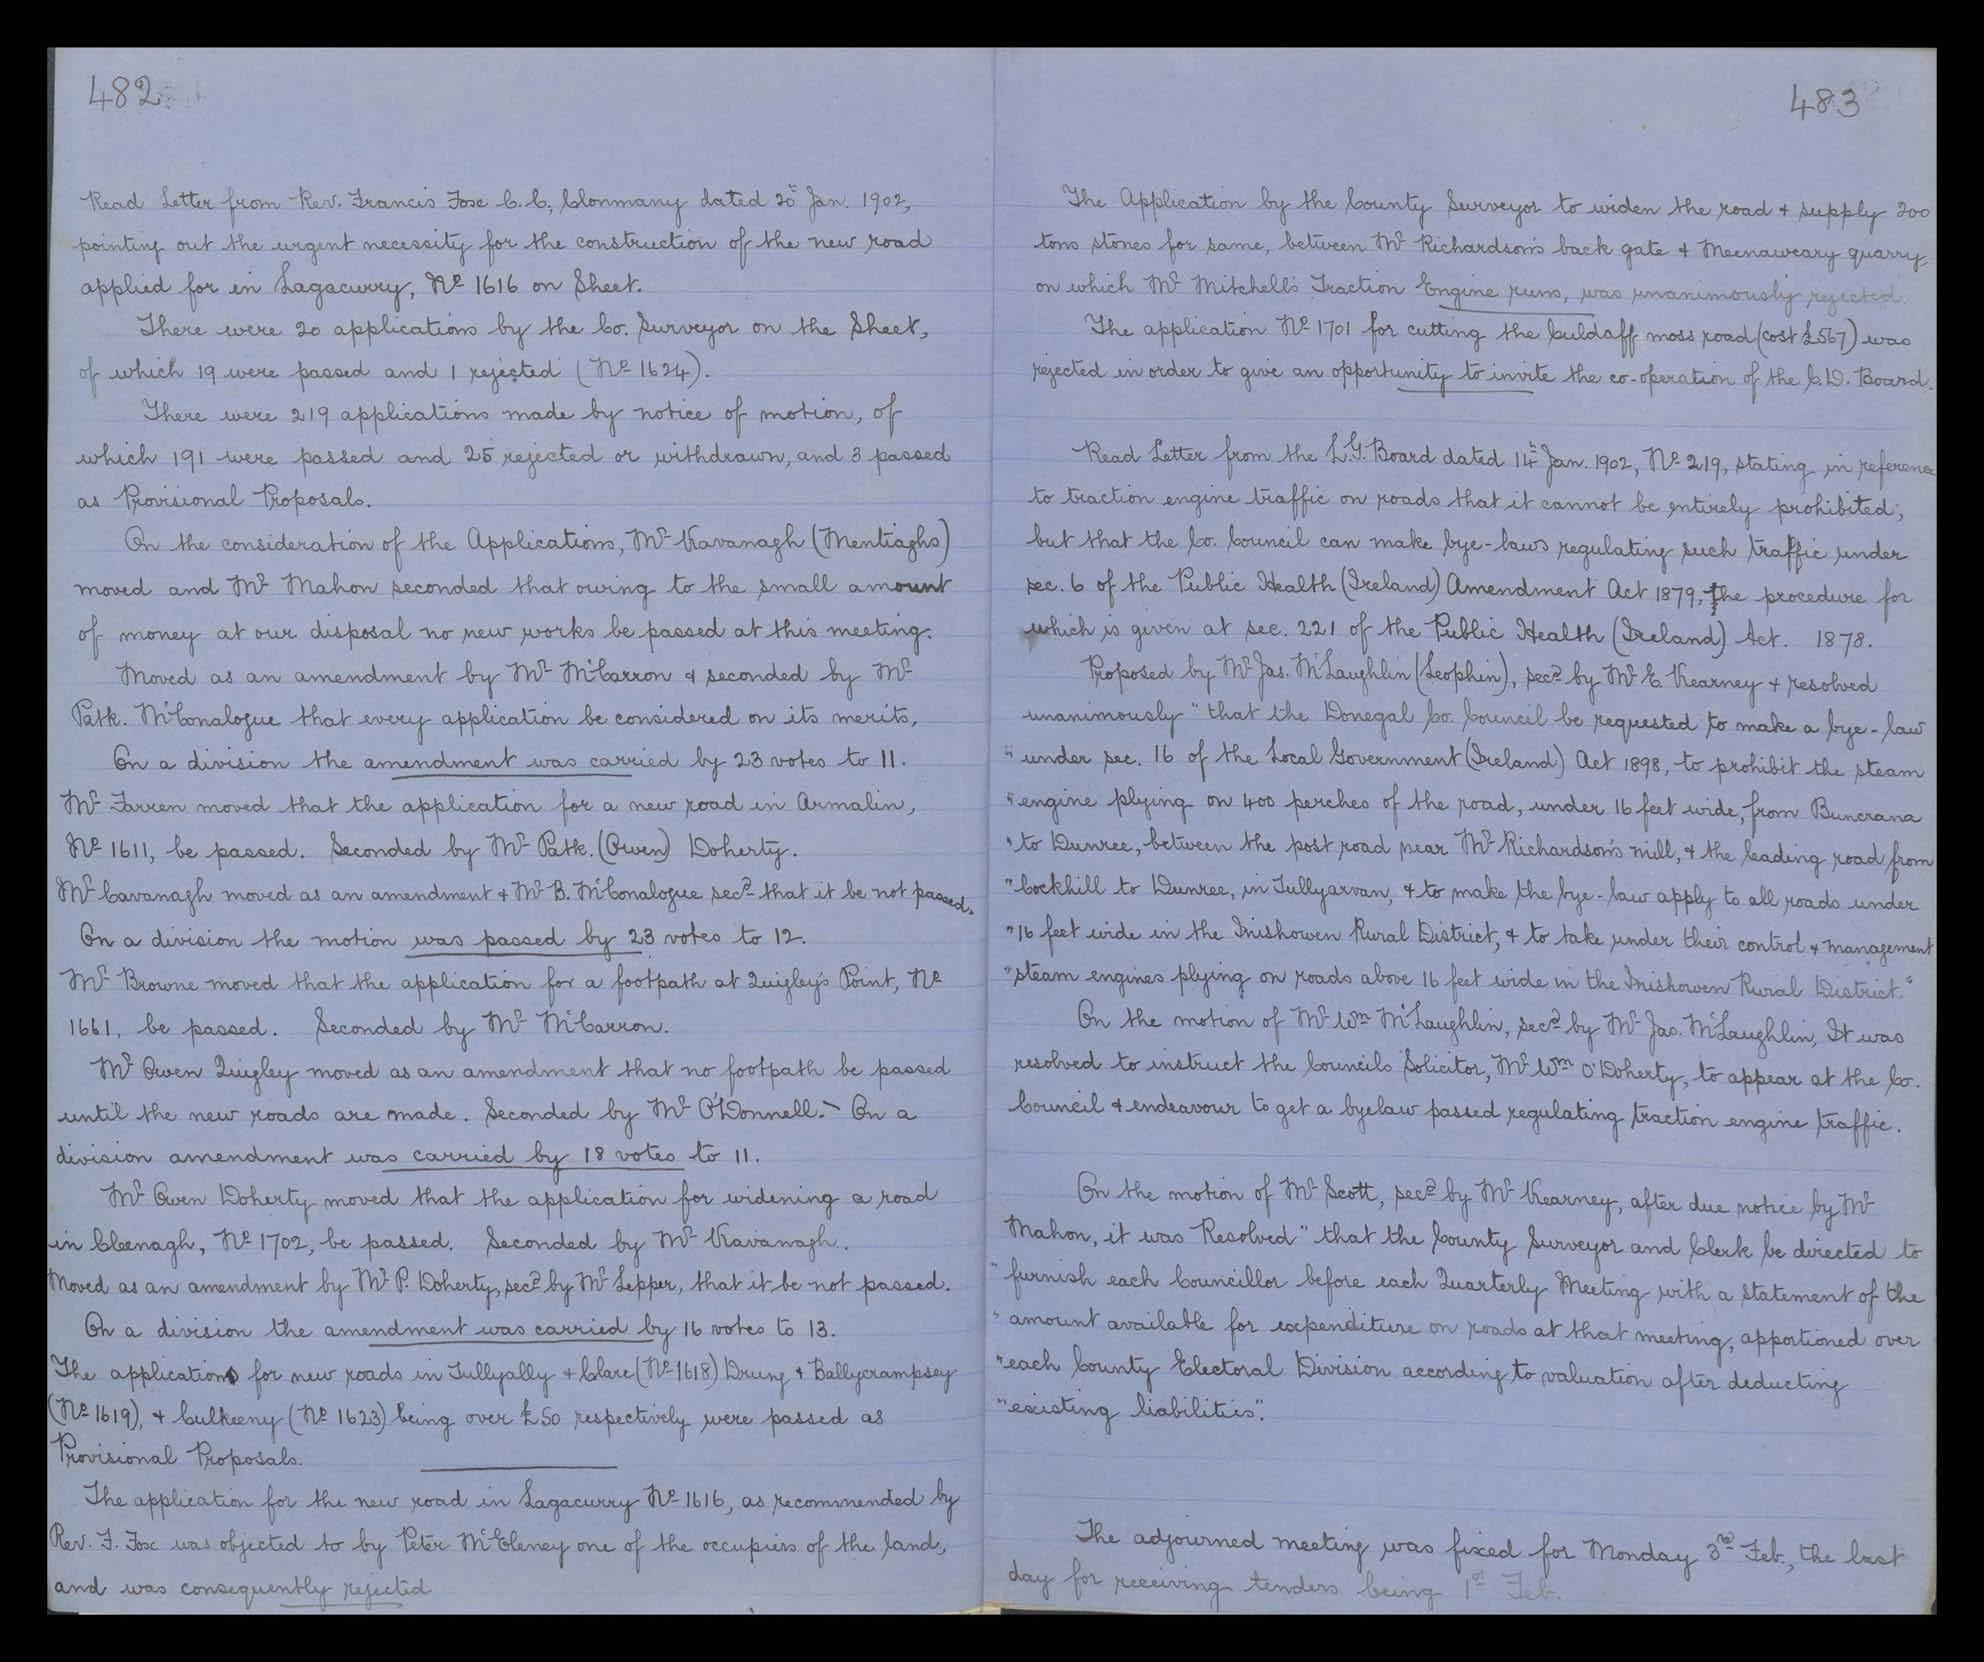 482
Read Letter from Rev. Francis Fox C.C, Clonmany dated 20th Jan. 1902,
pointing out the urgent necessity for the construction of the new road
applied for in Lagacurry, No 1616 on Sheet.
There were 20 applications by the Co. Surveyor on the Sheet,
of which 19 were passed and 1 rejected (No 1624).
There were 219 applications made by notice of motion, of
which 191 were passed and 25 rejected or withdrawn, and 3 passed
as Provisional Proposals.
On the consideration of the Applications, Mr Kavanagh (Mentiaghs)
moved and Mr Mahon seconded that owing to the small amount
of money at our disposal no new works be passed at this meeting.
Moved as an amendment by Mr McCarron & seconded by Mr
Patk. McConalogue that every application be considered on its merits,
On a division the amendment was carried by 23 votes to 11.
Mr Farren moved that the application for a new road in Armalin,
No 1611, be passed. Seconded by Mr Patk. (Owen) Doherty.
Mr Cavanagh moved as an amendment & Mr B. McConalogue secd that it be not passed.
On a division the motion was passed by 23 votes to 12.
Mr Browne moved that the application for a footpath at Quigley's Point, No
1661, be passed. Seconded by Mr McCarron.
Mr Owen Quigley moved as an amendment that no footpath be passed
until the new roads are made. Seconded by Mr O'Donnell. - On a
division amendment was carried by 18 votes to 11.
Mr Owen Doherty moved that the application for widening a road
in Cleenagh, No 1702, be passed. Seconded by Mr Kavanagh.
Moved as an amendment by Mr P. Doherty, secd by Mr Lepper, that it be not passed.
On a division the amendment was carried by 16 votes to 13.
The applications for new roads in Tullyally & Clare (No 1618) Drung & Ballycrampsey
(No 1619), & Culkeeny (No 1623) being over £50 respectively were passed as
Provisional Proposals.
The application for the new road in Lagacurry No 1616, as recommended by
Rev. F. Fox was objected to by Peter McEleney one of the occupiers of the land,
and was consequently rejected
483
The Application by the County Surveyor to widen the road & supply 200
tons stones for same, between Mr Richardson's back gate & Meenaweary quarry
on which Mr Mitchell's Traction Engine runs, was unanimously rejected.
The application No 1701 for cutting the Culdaff moss road (cost £567) was
rejected in order to give an opportunity to invite the co-operation of the C.D. Board.
Read Letter from the L.G. Board dated 14th Jan. 1902, No 219, stating in reference
to traction engine traffic on roads that it cannot be entirely prohibited,
but that the Co. Council can make bye-laws regulating such traffic under
sec. 6 of the Public Health (Ireland) Amendment Act 1879, the procedure for
which is given at sec. 221 of the Public Health (Ireland) Act. 1878.
Proposed by Mr Jas. McLaughlin (Leophin), secd by Mr E. Kearney & resolved
unanimously "that the Donegal Co. Council be requested to make a bye-law
"under sec. 16 of the Local Government (Ireland) Act 1898, to prohibit the steam
"engine plying on 400 perches of the road, under 16 feet wide, from Buncrana
"to Dunree, between the post road near Mr Richardson's mill, & the leading road from
"Cockhill to Dunree, in Tullyarvan, & to make the bye-law apply to all roads under
"16 feet wide in the Inishowen Rural District, & to take under their control & management
"steam engines plying on roads above 16 feet wide in the Inishowen Rural District."
On the motion of Mr Wm McLaughlin, secd by Mr Jas. McLaughlin, It was
resolved to instruct the Councils Solicitor, Mr Wm O'Doherty, to appear at the Co.
Council & endeavour to get a byelaw passed regulating traction engine traffic.
On the motion of Mr Scott, secd by Mr Kearney, after due notice by Mr
Mahon, it was Resolved "that the County Surveyor and Clerk be directed to
"furnish each Councillor before each Quarterly Meeting with a statement of the
"amount available for expenditure on roads at that meeting, apportioned over
"each County Electoral Division according to valuation after deducting
"existing liabilities".
The adjourned meeting was fixed for Monday 3rd Feb., the last
day for receiving tenders being 1st Feb.